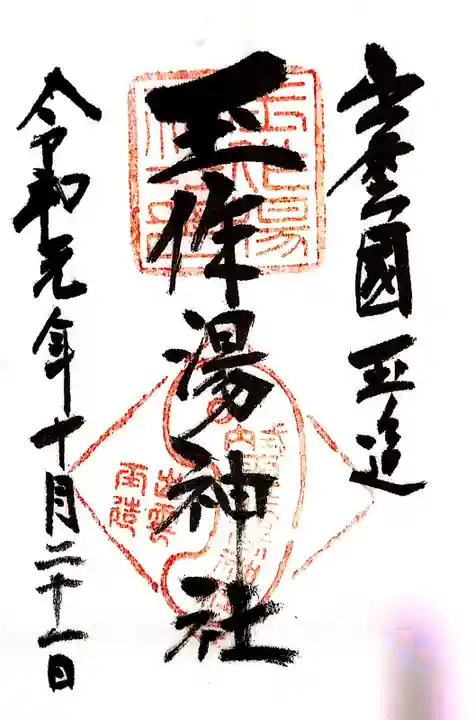 出雲國 玉造
玉作湯神社
令和元年十月二十一日
出雲
玉造